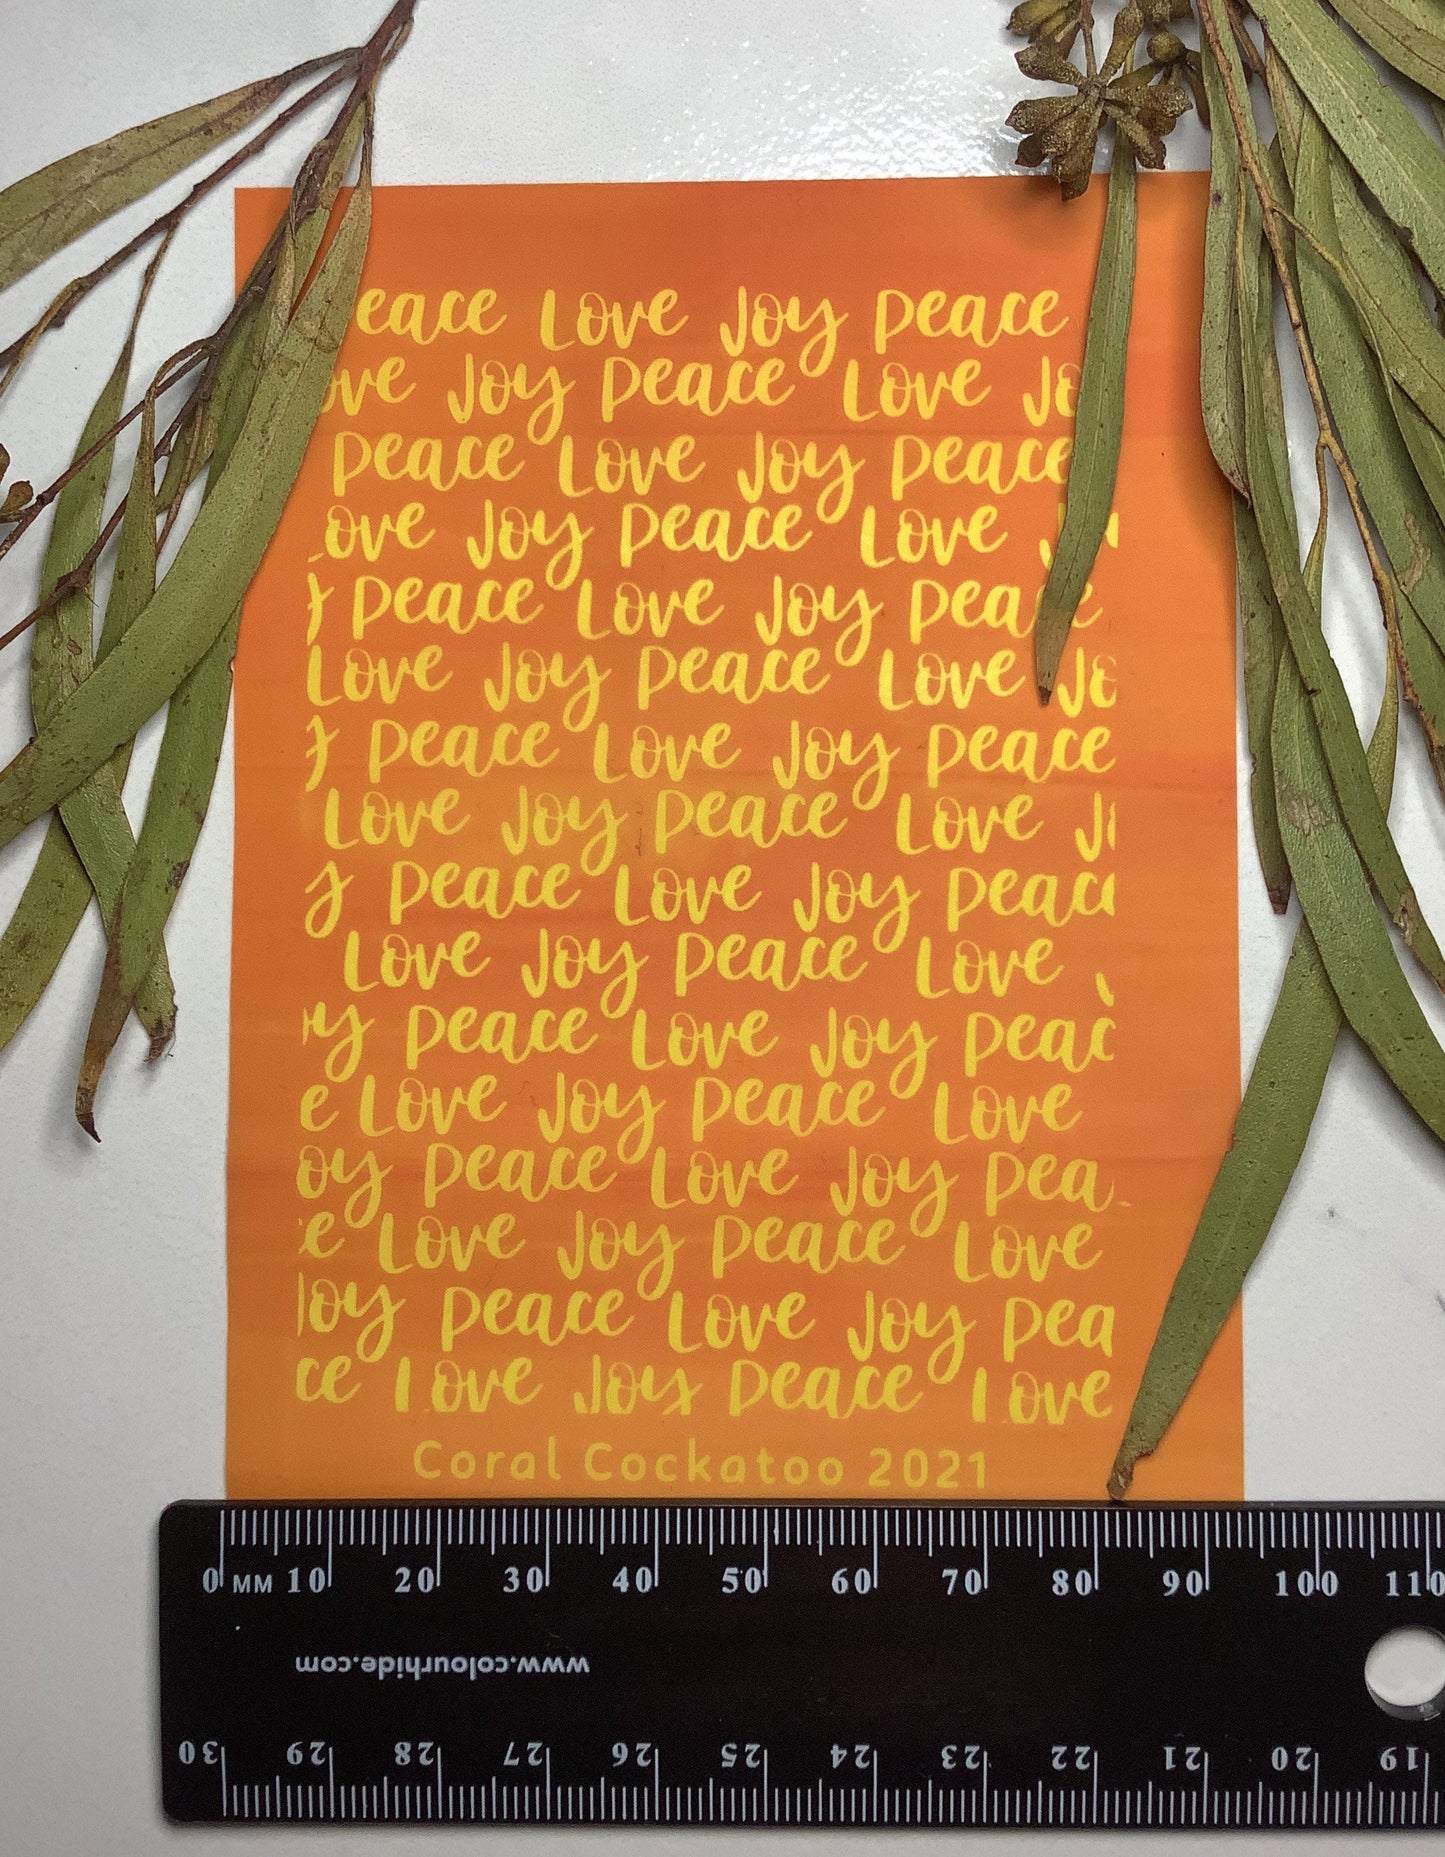 eace Love Joy Peace
ove Joy Peace Love Jo
Peace Love Joy Peace
Love Joy Peace Love Joy
y Peace Love Joy Peace
Love Joy Peace Love Jo
y Peace Love Joy Peace
Love Joy Peace Love Jo
y Peace Love Joy Peac
Love Joy Peace Love
oy Peace Love Joy Peac
e Love Joy Peace Love
oy Peace Love Joy Pea
e Love Joy Peace Love
Joy Peace Love Joy Pea
ce Love Joy Peace Love
Coral Cockatoo 2021
0 MM 10 20 30 40 50 60 70 80 90 100 110
www.colourhide.com
30 29 28 27 26 25 24 23 22 21 20 19